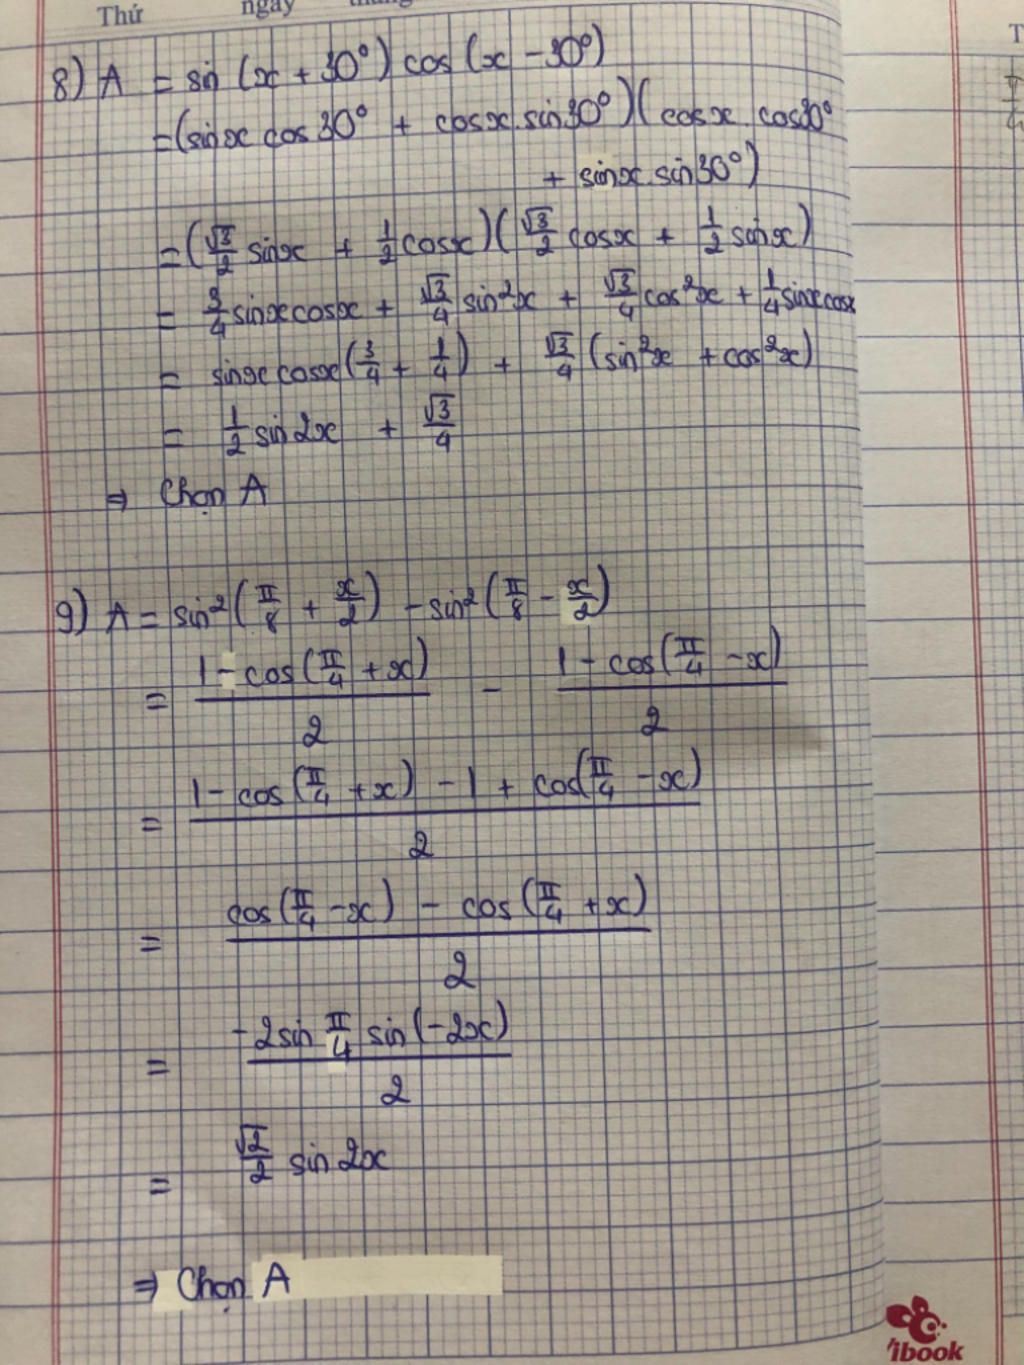 Thứ
ngày
8) A = sin (x + 30°) cos (x - 30°)
= (sinx cos 30° + cosx. sin 30°)( cosx. cos30°
+ sinx. sin 30°)
= (√3/2 sinx + 1/2 cosx)(√3/2 cosx + 1/2 sinx)
= 3/4 sinx cosx + √3/4 sin²x + √3/4 cos²x + 1/4 sinx cosx
= sinx cosx (3/4 + 1/4) + √3/4 (sin²x + cos²x)
= 1/2 sin 2x + √3/4
⇒ Chọn A
9) A = sin² (π/8 + x/2) - sin² (π/8 - x/2)
= (1 - cos (π/4 + x))/2 - (1 - cos (π/4 - x))/2
= (1 - cos (π/4 + x) - 1 + cos(π/4 - x))/2
= (cos (π/4 - x) - cos (π/4 + x))/2
= (-2sin π/4 sin (-2x))/2
= √2/2 sin 2x
⇒ Chọn A
ibook